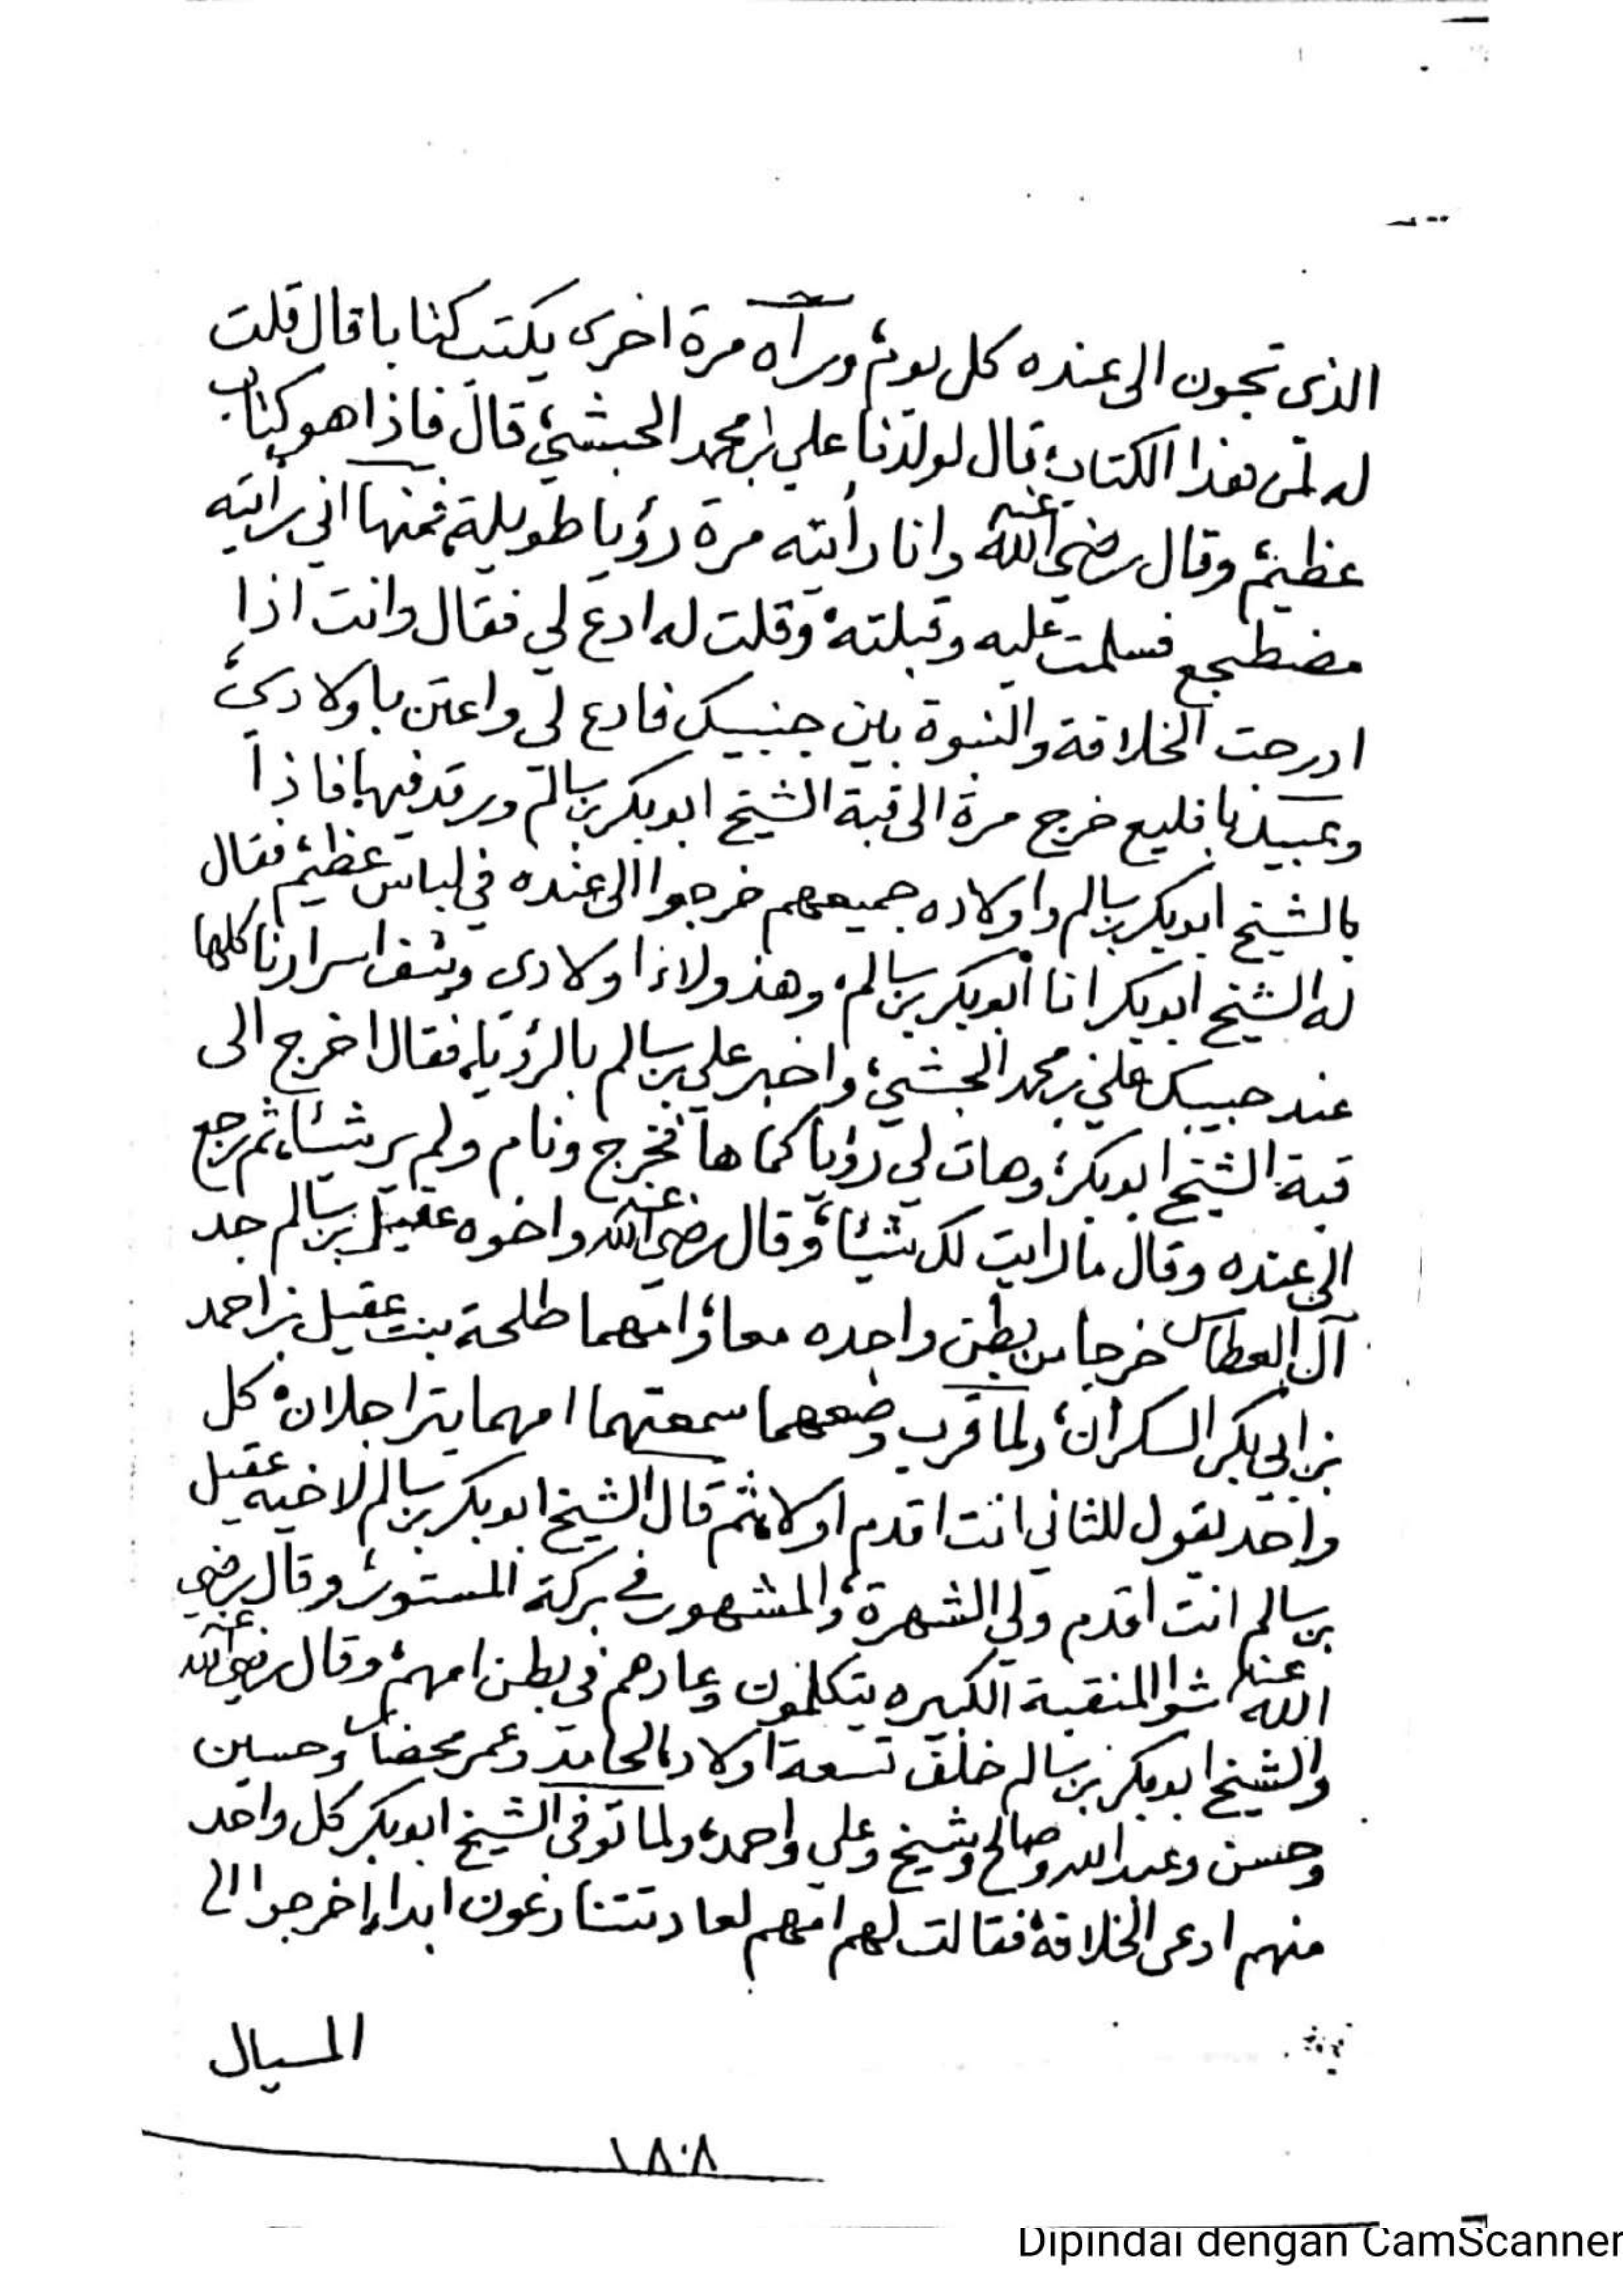 الذى تجون الى عنده كل يوم، ورآه مرة اخرى يكتب كتابا قال قلت
له لمن هذا الكتاب، قال لولدنا علي بن محمد الحبشي، قال فاذا هو كتاب
عظيم، وقال رضي الله عنه وانا رأيته مرة رؤيا طويلة، فمنها اني رأيته
مضطجع فسلمت عليه وقبلته، وقلت له ادع لي فقال وانت اذا
ادرجت الخلافة والنبوة بين جنبيك فادع لي واعتن باولادي،
وعبيد بافليع خرج مرة الى قبة الشيخ ابوبكر بن سالم ورقد فيها، فاذا
بالشيخ ابوبكر بن سالم واولاده جميعهم خرجوا الى عنده في لباس عظيم، فقال
له الشيخ ابوبكر انا ابوبكر بن سالم، وهذولاء اولادى وشف اسرارنا كلها
عند حبيبك علي بن محمد الحبشي، واخبر علي بن سالم بالرؤيا، فقال اخرج الى
قبة الشيخ ابوبكر، وهات لي رؤيا كماها، فخرج ونام ولم ير شيئا، ثم رجع
الى عنده وقال ما رايت لك شيئا، وقال رضي الله عنه واخوه عقيل بن سالم جد
آل العطاس خرجا من بطن واحده معا، وامهما طلحة بنت عقيل بن احمد
بن ابي بكر السكران، ولما قرب وضعهما سمعتهما امهما يتراجلان، كل
واحد يقول للثاني انت اقدم اولا، ثم قال الشيخ ابوبكر بن سالم لاخيه عقيل
بن سالم انت اقدم ولي الشهرة، والمشهور في بركة المستور، وقال رضي
الله عنه شوا المنقبة الكبيره يتكلمون وعادهم في بطن امهم، وقال رضي الله عنه
والشيخ ابوبكر بن سالم خلف تسعة اولاد، الحامد وعمر محضار وحسين
وحسن وعبدالله وصالح وشيخ وعلي واحمد، ولما توفى الشيخ ابوبكر كل واحد
منهم ادعى الخلافة، فقالت لهم امهم لعاد تتنازعون ابدا، اخرجوا الى
المسيال
١٨٠٨
Dipindai dengan CamScanner